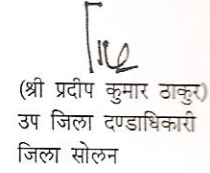 (श्री प्रदीप कुमार ठाकुर)
उप जिला दण्डाधिकारी
जिला सोलन